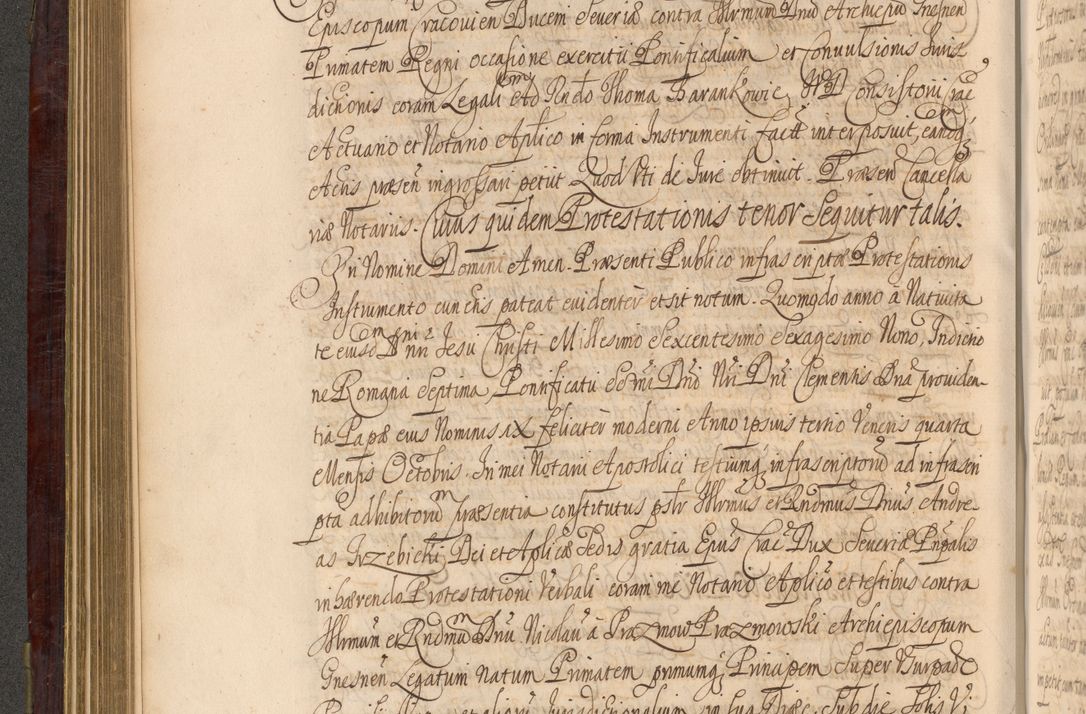 Episcopum Cracovien Ducem Severiæ contra Illrmum Dnum Archiepum Gnesnen
Primatem Regni occasione exercitii Pontificalium et Convulsionis Juris
dictionis coram Legali et Adm Rndo Thoma Barankowic, N.D. Consistorii Crac
Actuario et Notario Aplico in forma Instrumenti facta interposuit, eamq3
Actis præsen ingrossari petiit Quod Uti de Jure obtinuit. Præsen Cancella
riæ Notariis. Cuius quidem Protestationis tenor Sequitur talis.
In Nomine Domini Amen. Præsenti Publico infrascriptæ Protestationis
Instrumento cunctis pateat evidenter et sit notum. Quomodo anno a Nativita
te eiusdem Dni nri Jesu Christi Millesimo Sexcentesimo Sexagesimo Nono, Indictio
ne Romana Septima, Pontificatu Ssmi Dni Nri Dni Clementis Dna providen
tia Papæ eius Nominis IX feliciter moderni Anno ipsius tertio Veneris quarta
Mensis Octobris. In mei Notarii Apostolici testiumq infrascriptorum ad infrascri
pta adhibitorum præsentia constitutus pslr Illrmus et Rndmus Dnus Andre
as Trzebicki, Dei et Aplicæ Sedis gratia Epus Crac Dux Severiæ Pnpalis
inhærendo Protestationi Verbali coram me Notario Aplico et testibus contra
Illrmum et Rndmum Dnum Nicolaum a Prazmow Prazmowski Archiepiscopum
Gnesnen Legatum Natum Primatem primumq Principem Super Usurpa